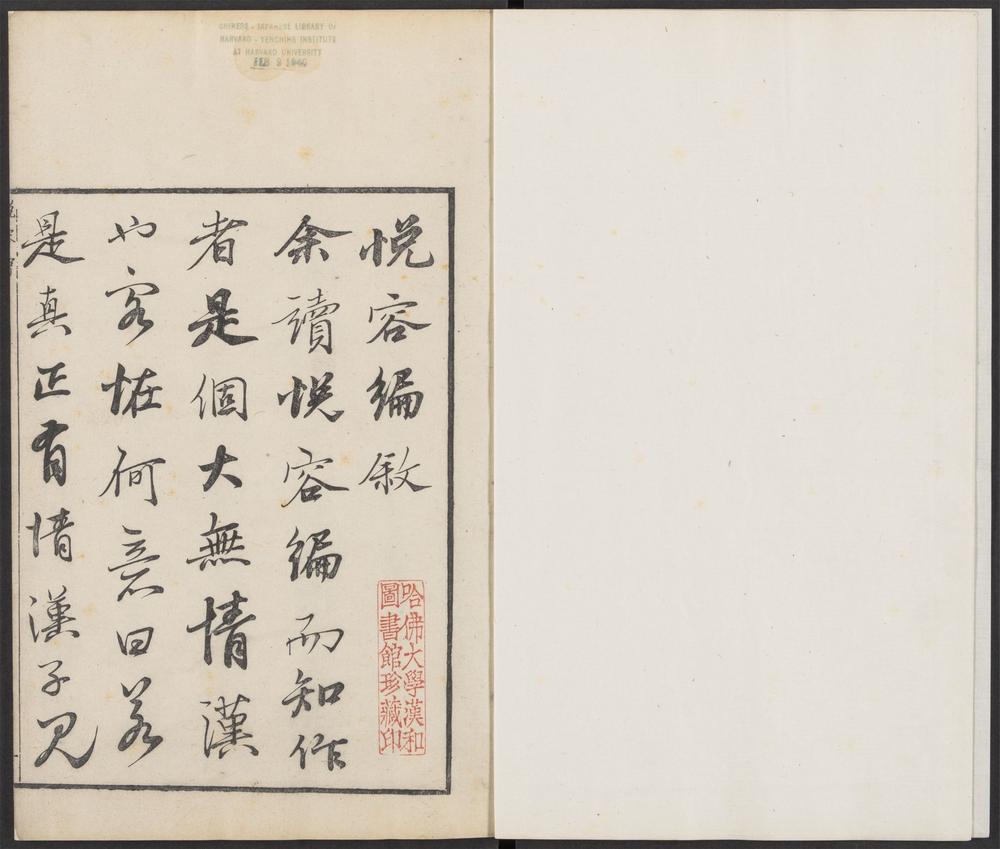 CHINESE - JAPANESE LIBRARY OF
HARVARD - YENCHING INSTITUTE
AT HARVARD UNIVERSITY
FEB 9 1940
悅容編敘
余讀悅容編而知作
者是個大無情漢
也客恠何意曰若
是真正有情漢子見
哈佛大學漢和
圖書館珍藏印